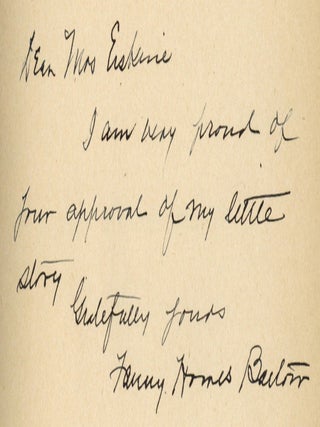 Dear Mrs Erskine
I am very proud of
your approval of my little
story
Gratefully yours
Fanny Barlow